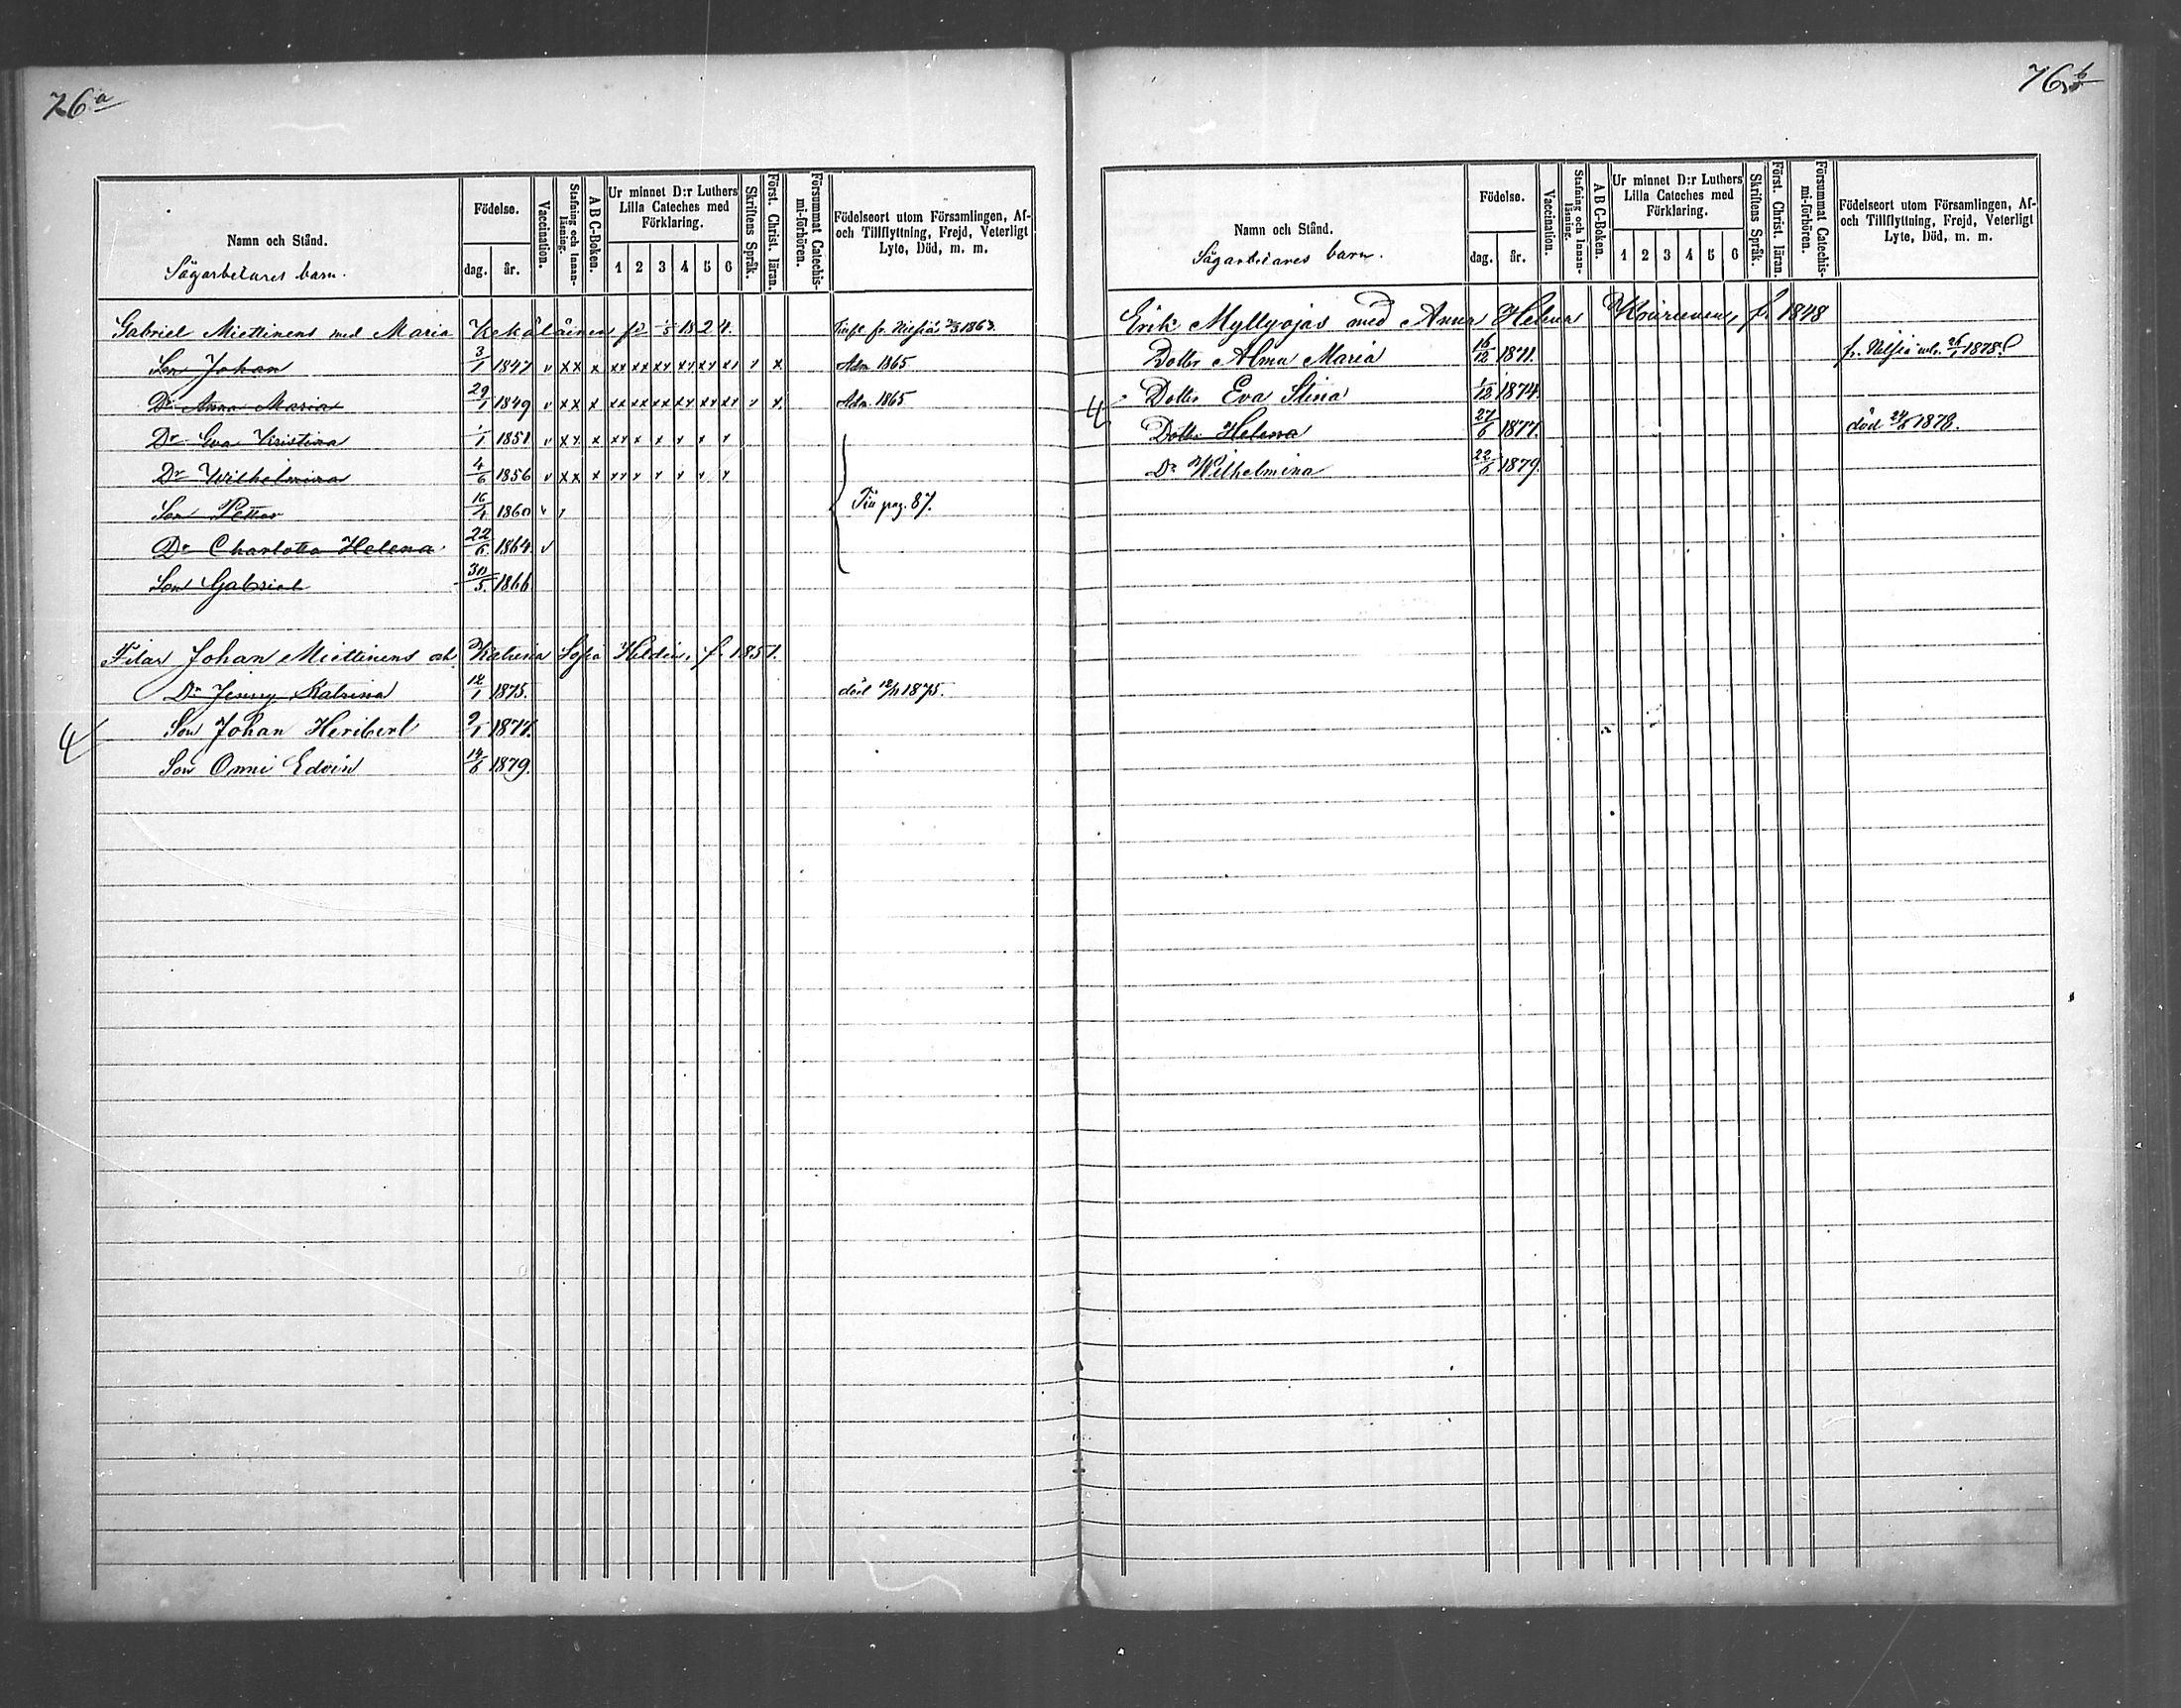 76a
Namn och Stånd.
Sågarbetares barn.
Födelse.
dag.
år.
Vaccination.
Stafning och Innan-läsning.
A B C-Boken.
Ur minnet D:r Luthers Lilla Cateches med Förklaring.
1 2 3 4 5 6
Skriftens Språk.
Först. Christ. läran.
Försummat Catechis-mi-förhören.
Födelseort utom Församlingen, Af- och Tillflyttning, Frejd, Veterligt Lyte, Död, m. m.
Gabriel Miettinens med Maria Kekäläinen 1824. fr. 1863.
Son Johan 3/1 1847 v xx x xx xx xx xx xx x x Adm 1865
Dr Anna Maria 29/1 1849 v xx x xx xx xx xx xx xx v x. Adm. 1865
Dr Eva Kristina 1/1 1851 v xx x xx x x x x x
Dr Wilhelmina 4/6 1856 v xx x xx x x x x x
Son Petter 16/4 1860 v v pag. 87.
Dr Charlotta Helena 22/6 1864 v
Son Gabriel 30/5. 1866
Filar Johan Miettinens och Katrina Sofia Heldin, f. 1851.
Dr Jenny Katrina 12/1 1875. död 12/11 1875.
Son Johan Heribert 9/1 1877.
4
Son Onni Edvin 14/6 1879.
76b
Namn och Stånd.
Sågarbetares barn.
Födelse.
dag.
år.
Vaccination.
Stafning och Innan-läsning.
A B C-Boken.
Ur minnet D:r Luthers Lilla Cateches med Förklaring.
1 2 3 4 5 6
Skriftens Språk.
Först. Christ. läran.
Försummat Catechis-mi-förhören.
Födelseort utom Församlingen, Af- och Tillflyttning, Frejd, Veterligt Lyte, Död, m. m.
Erik Myllyojas med Anna Helena f. 1848
Dotter Alma Maria 16/12 1871. fr. Nilsiä 26/1 1878.
Dotter Eva Stina 1/12 1874.
4
Dotter Helena 27/6 1877. död 24/6 1878.
Dr Wilhelmina 22/6 1879.